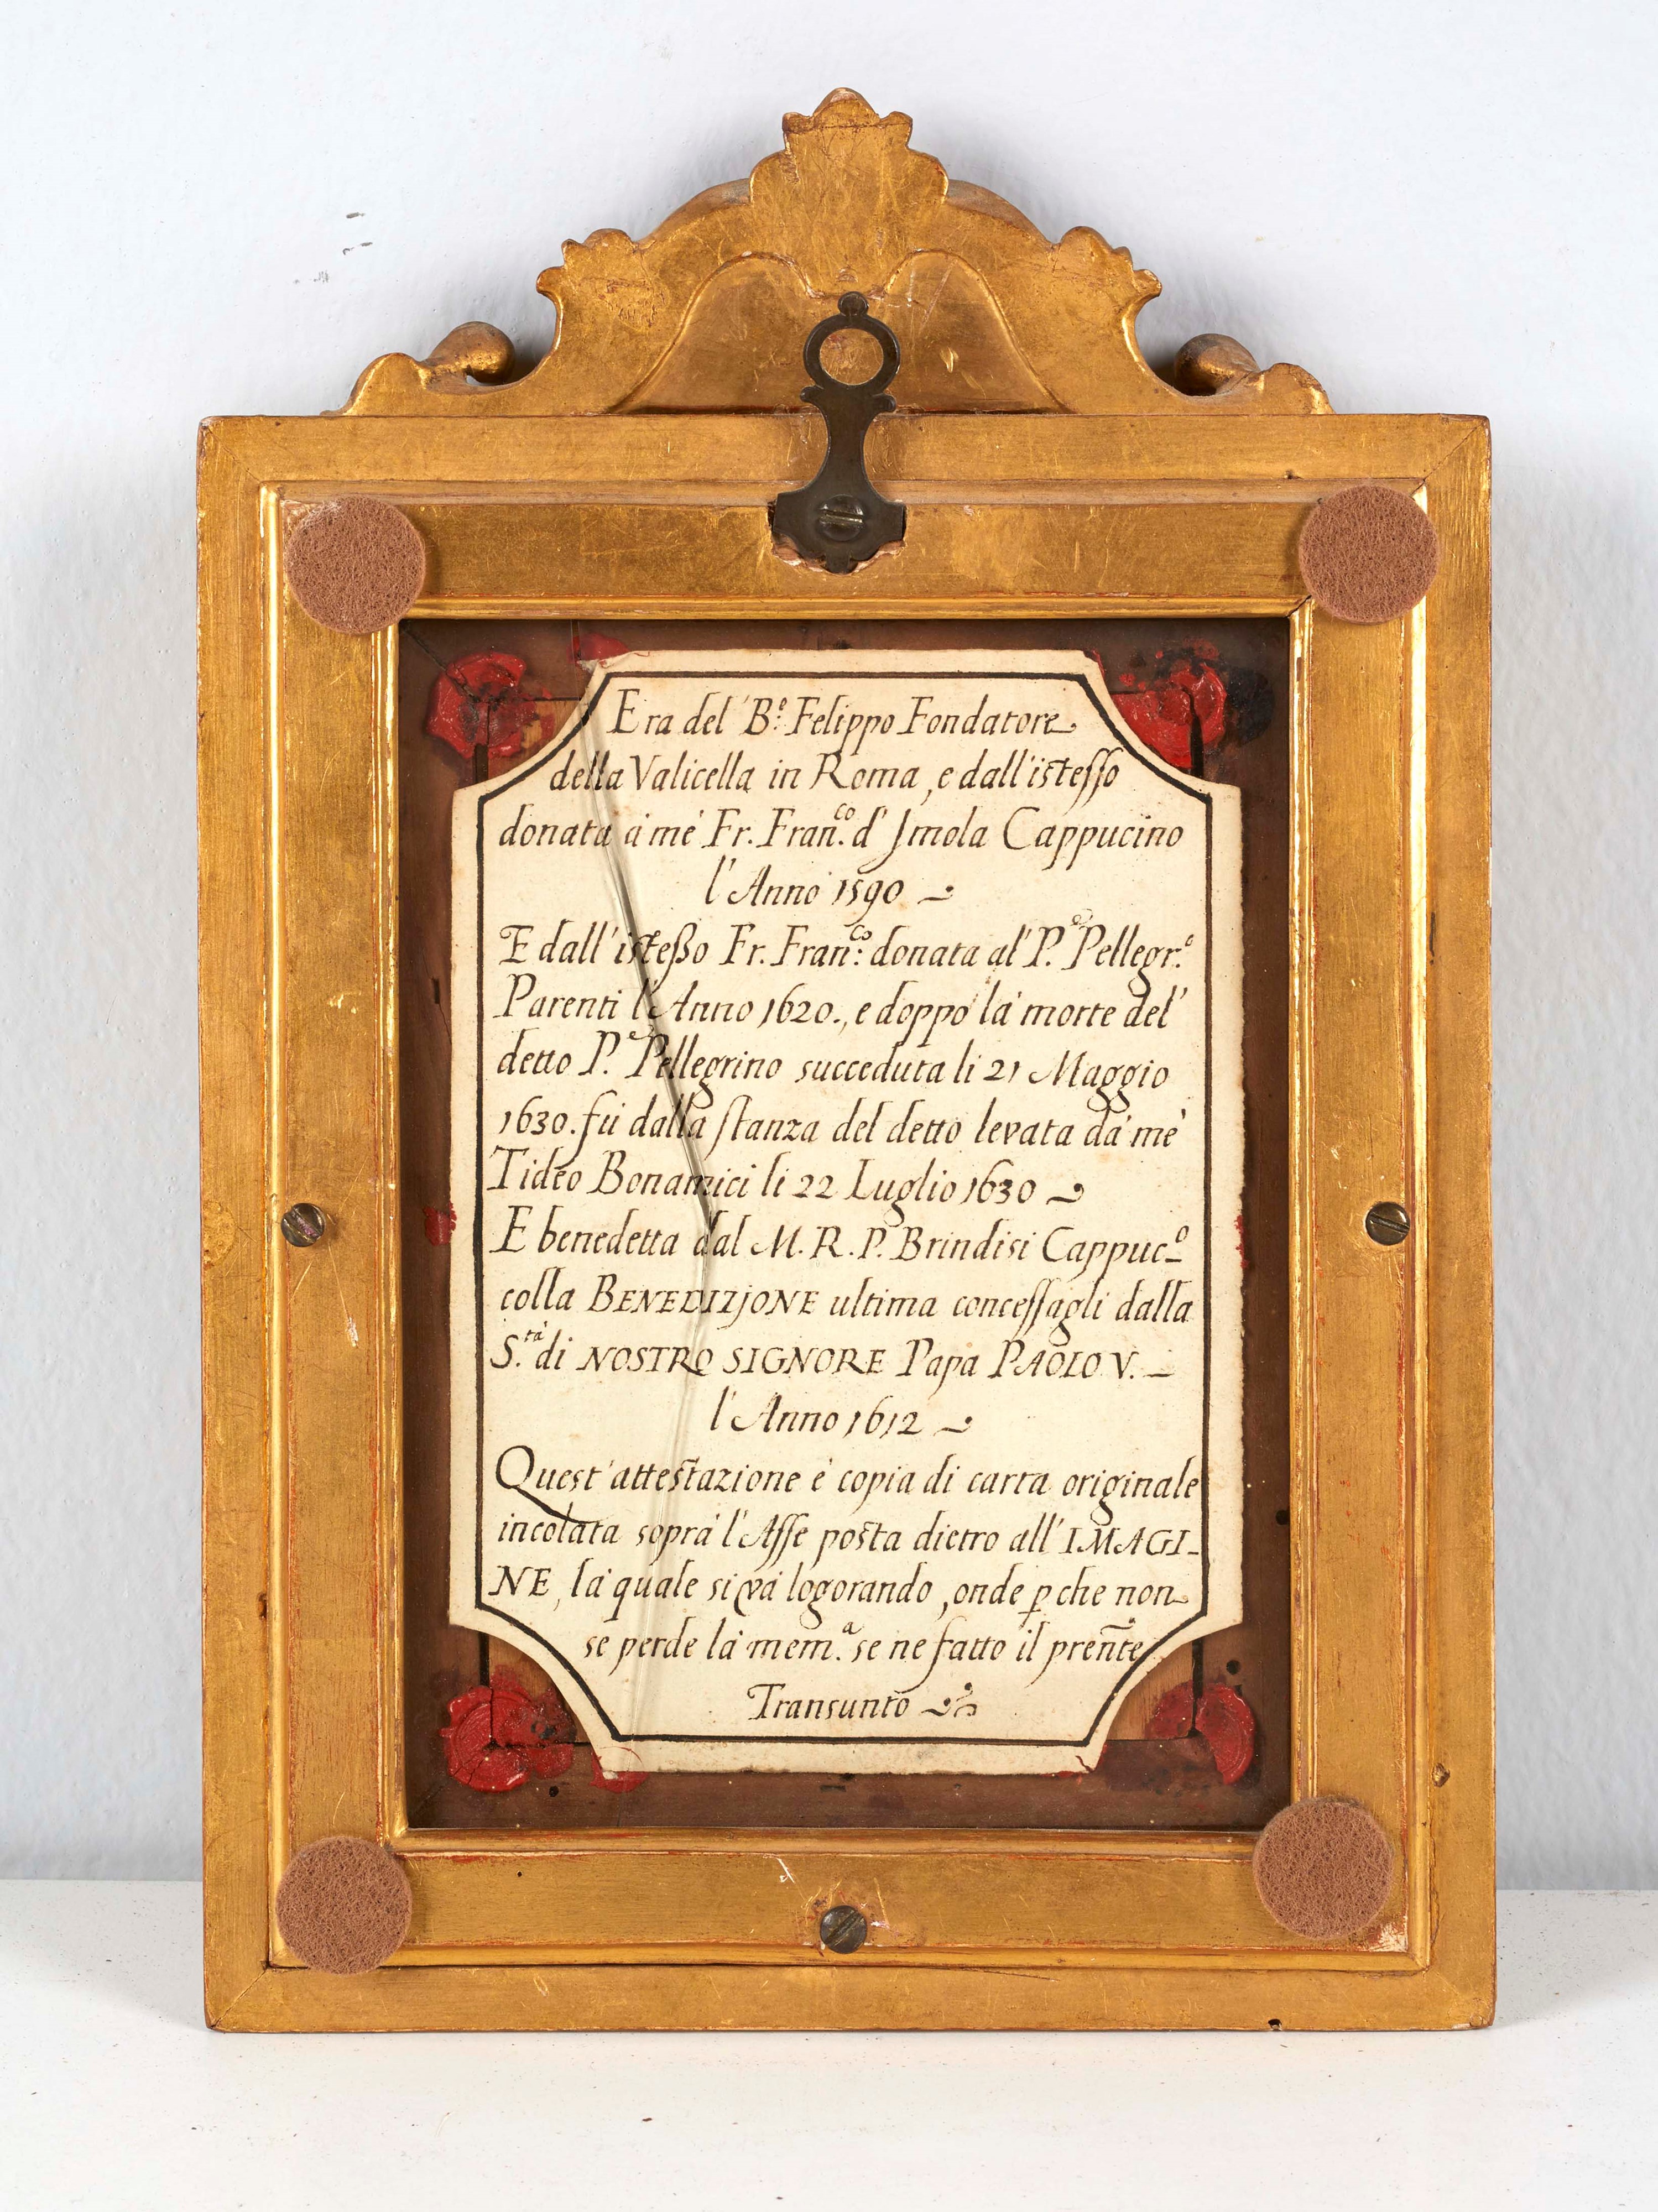 Era del B.º Felippo Fondatore
della Valicella in Roma, e dall'istesso
donata à mè Fr. Fran.co d'Jmola Cappucino
l'Anno 1590
E dall'isteßo Fr. Fran.co: donata al P.e Pellegr.º
Parenti l'Anno 1620., e doppò là morte del
detto P.e Pellegrino succeduta li 21 Maggio
1630. fù dalla stanza del detto levata dà mè
Tideo Bonamici li 22 Luglio 1630
E benedetta dal M. R. P. Brindisi Cappuc.º
colla BENEDIZJONE ultima concessagli dalla
S.tà di NOSTRO SIGNORE Papa PAOLO V.
l'Anno 1612
Quest'attestazione è copia di carta originale
incolata soprà l'Asse posta dietro all'IMAGI-
NE, là quale si và logorando, onde pche non
se perde là mem.a se ne fatto il preñte
Transunto